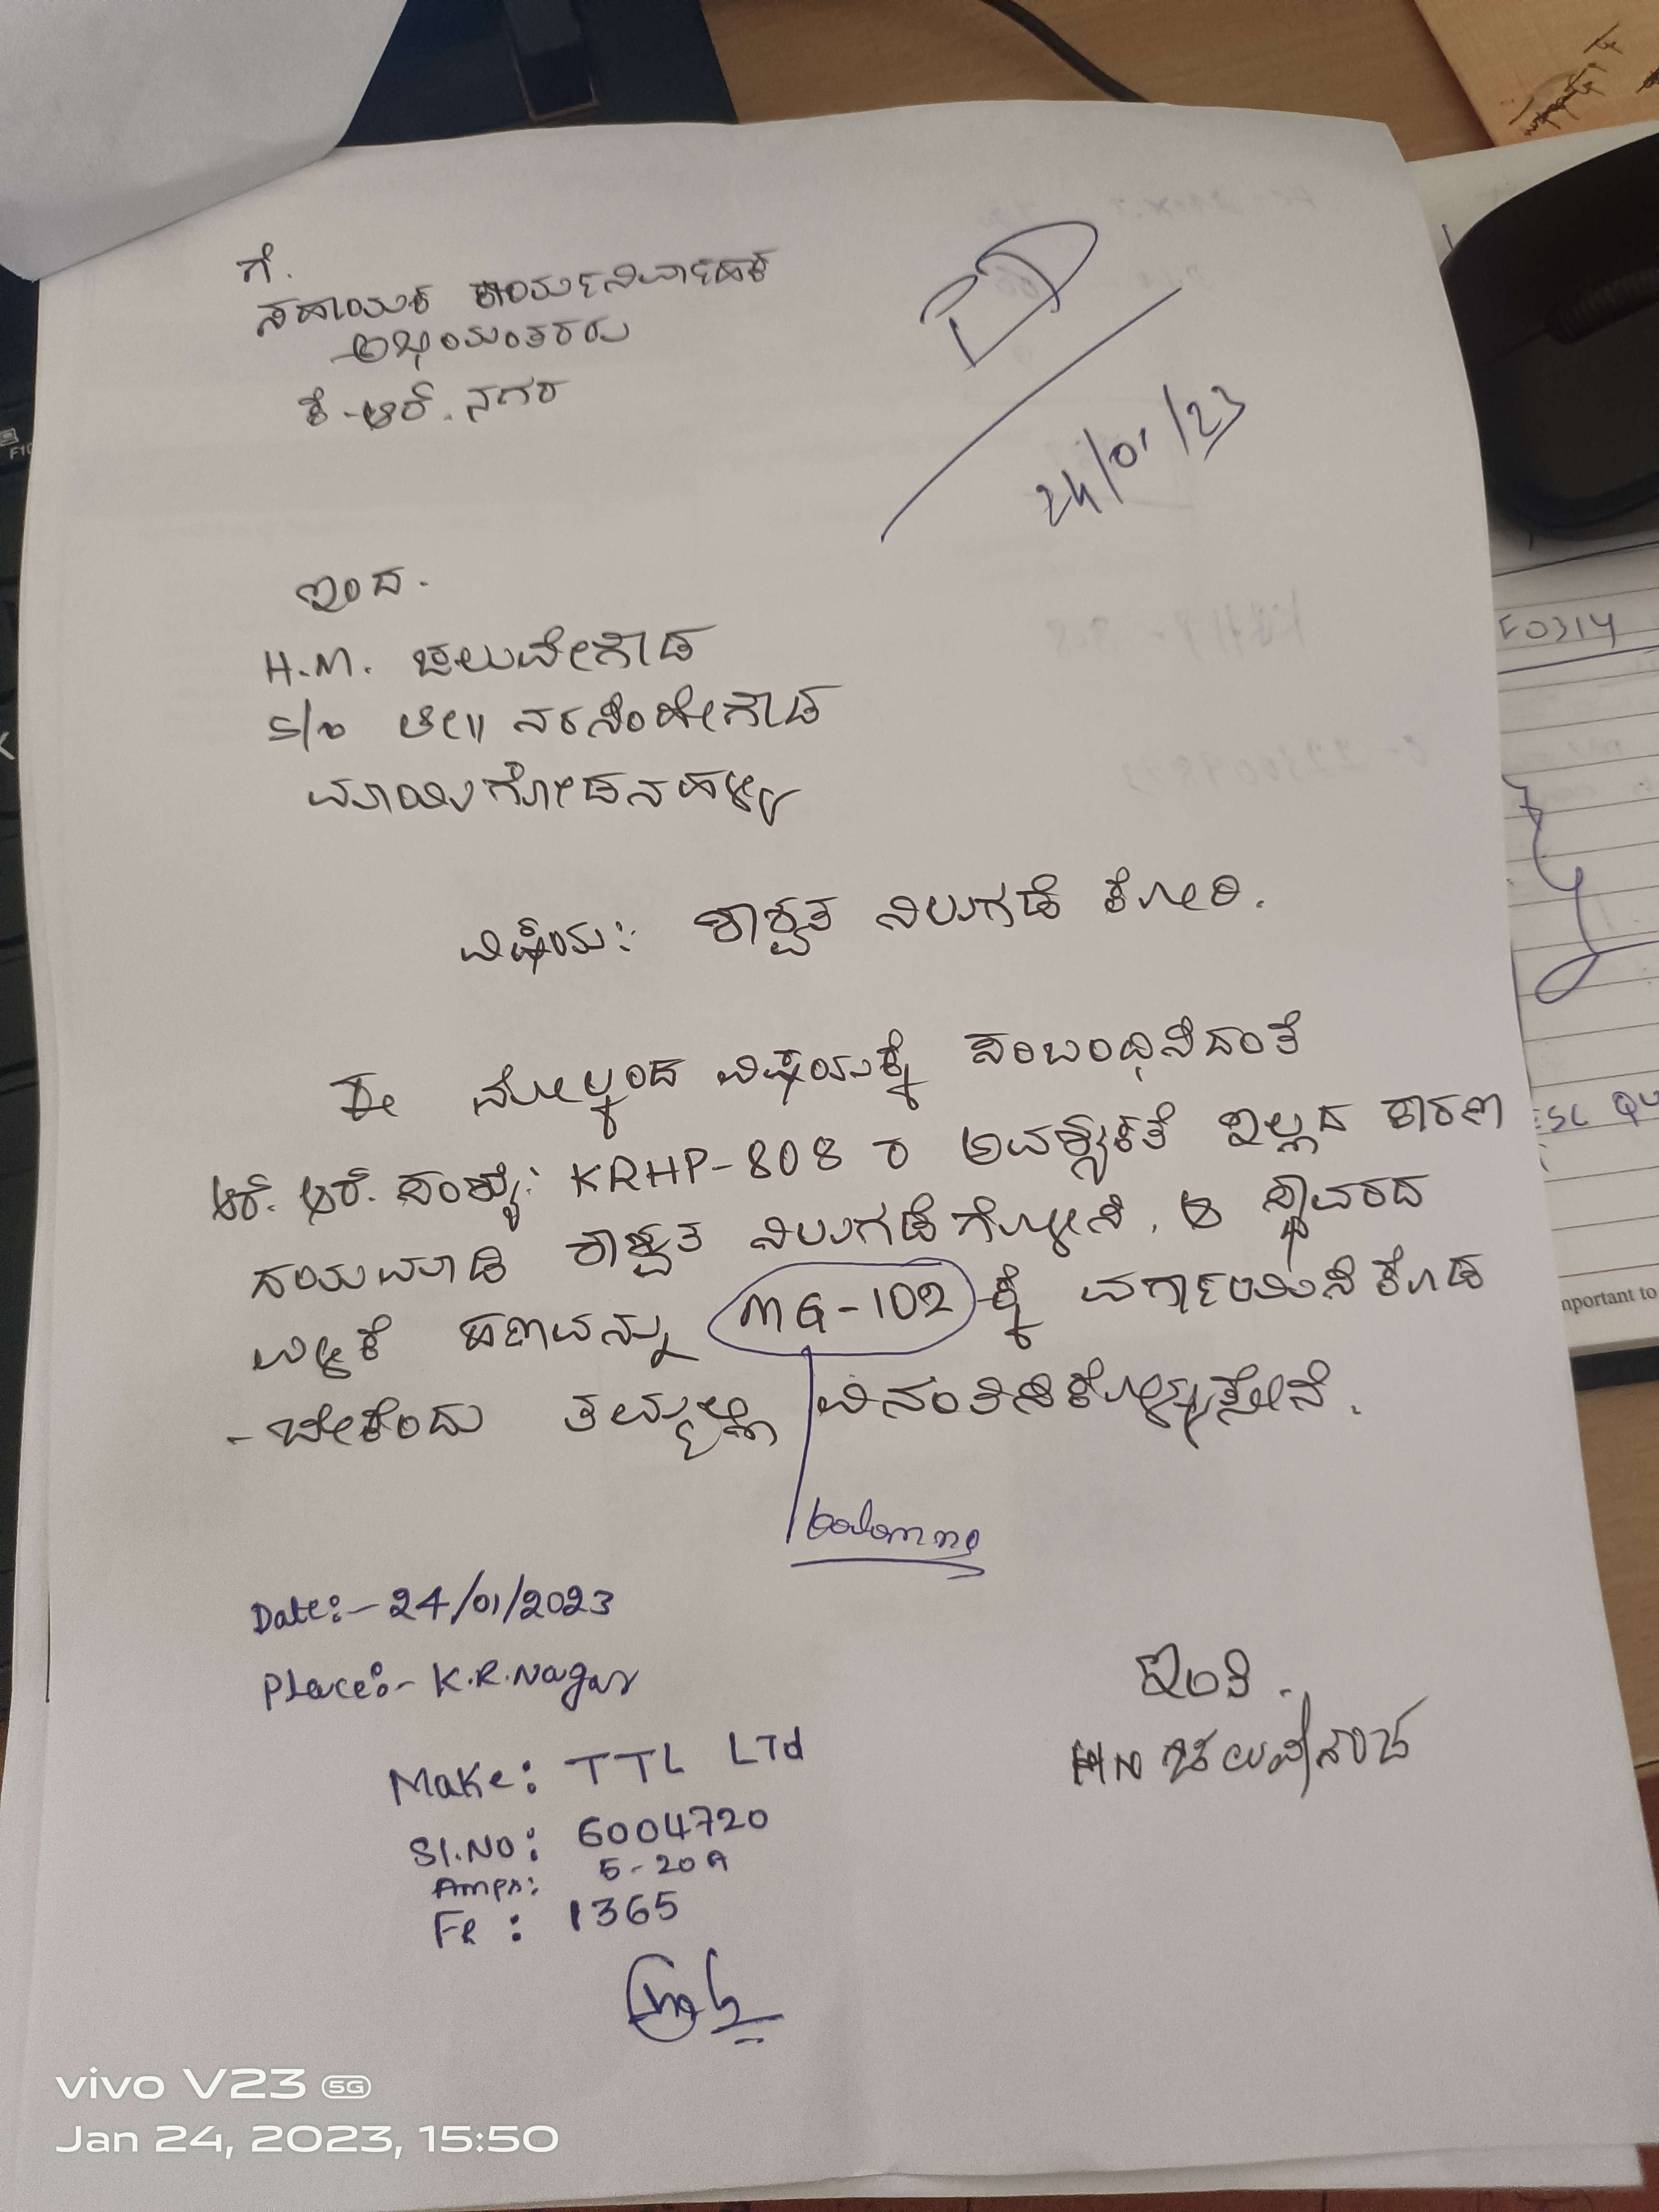 ಗೆ.
ಸಹಾಯಕ ಕಾರ್ಯನಿರ್ವಾಹಕ
ಅಭಿಯಂತರರು
ಕೆ.ಆರ್. ನಗರ
24/01/23
ಇಂದ.
H.M. ಚಲುವೇಗೌಡ
S/o ಲೇ|| ನರಸಿಂಹೇಗೌಡ
ಮಾಯಿಗೋಡನಹಳ್ಳಿ
ವಿಷಯ: ಶಾಶ್ವತ ನಿಲುಗಡೆ ಕೋರಿ.
ಈ ಮೇಲ್ಕಂಡ ವಿಷಯಕ್ಕೆ ಸಂಬಂಧಿಸಿದಂತೆ
ಆರ್. ಆರ್. ಸಂಖ್ಯೆ: KRHP-808 ರ ಅವಶ್ಯಕತೆ ಇಲ್ಲದ ಕಾರಣ
ದಯಮಾಡಿ ಶಾಶ್ವತ ನಿಲುಗಡೆಗೊಳಿಸಿ, ಆ ಸ್ಥಾವರದ
ಉಳಿಕೆ ಹಣವನ್ನು MG-102 ಕ್ಕೆ ವರ್ಗಾಯಿಸಿಕೊಡ
-ಬೇಕೆಂದು ತಮ್ಮಲ್ಲಿ ವಿನಂತಿಸಿಕೊಳ್ಳುತ್ತೇನೆ.
Date:- 24/01/2023
Place:- K.R.Nagar
ಇಂತಿ.
Make: TTL LTd
Sl.No: 6004720
Amps: 5-20A
FR: 1365
vivo V23 5G
Jan 24, 2023, 15:50
F0314
ESC QU
mportant to